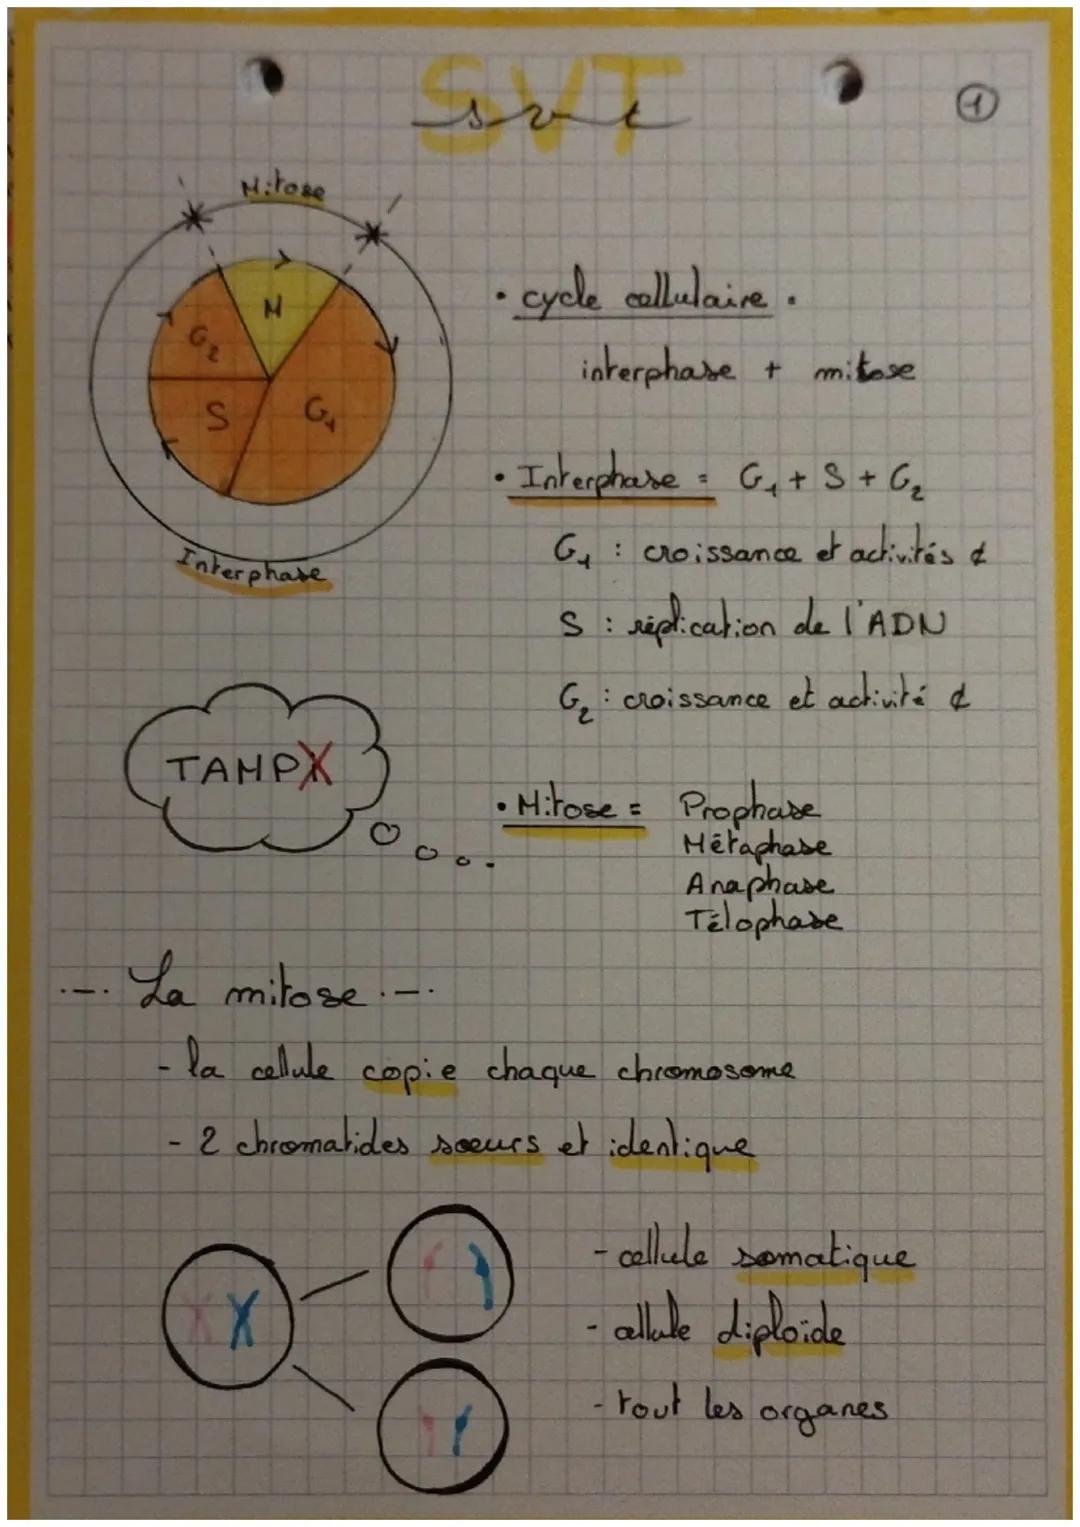 SVT
svt
1
Mitose
M
G2
S
G1
Interphase
• cycle cellulaire .
interphase + mitose
• Interphase = G1 + S + G2
G1 : croissance et activités ¢
S : réplication de l'ADN
G2 : croissance et activité ¢
TAMPX
• Mitose = Prophase
Métaphase
Anaphase
Télophase
.-. La mitose .-.
- la cellule copie chaque chromosome
- 2 chromatides sœurs et identique
- cellule somatique
- cellule diploïde
- tout les organes